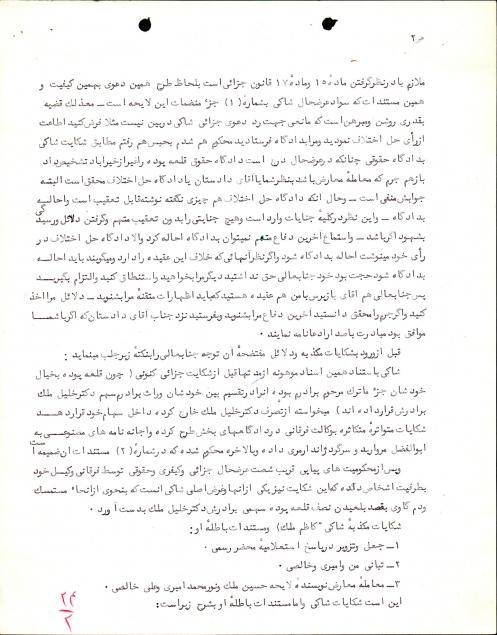 ص ۲
ملازم بادرنظرگرفتن ماده ۱۵ وماده ۱۷ قانون جزائی است بلحاظ طرح همین دعوی بهمین کیفیت و
همین مستندات که سوادعرضحال شاکی بشماره (۱) جزء منضمات این لایحه است ــ معذلک قضیه
بقدری روشن ومبرهن است که مانعی جهت رد دعوی جزائی شاکی دربین نیست مثلا فرض کنید اطاعت
ازرأی حل اختلاف نمودید ومرابدادگاه فرستادید محکوم هم شدم بحبس هم رفتم مطابق شکایت شاکی
بدادگاه حقوقی چنانکه درعرضحال درج است دادگاه حقوق قلعه بوده راغیرازخیرآباد تشخیص داد
بازهم جرم که معامله معارض باشد بنظرشمایاآقای دادستان یادادگاه حل اختلاف محقق است البته
جوابش منفی است ــ وحال انکه دادگاه حل اختلاف هم چیزی نگفته نوشته قابل تعقیب است واحاله
بدادگاه ــ واین نظردرکلیه جنایات وارد است وهیچ جنایتی رابدون تعقیب متهم وگرفتن دلائل ورسیدگی
بشهود اگرباشد ــ واستماع آخرین دفاع متهم نمیتوان بدادگاه احاله کرد والا دادگاه حل اختلاف در
رأی خود مینوشت احاله بدادگاه شود واگرنظرآنهائی که خلاف این عقیده رادارد ومیگویند باید احاله
بدادگاه شود حجت بود خود جنابعالی حق نداشتید دیگرمرابخواهید واستنطاق کنید والتزام بگیرید
پس جنابعالی هم آقای بازپرس بامن هم عقیده هستید که باید اظهارات متقنه مرابشنوید ــ دلائل مرااخذ
کنید واگرجرم رامحقق دانستید آخرین دفاع مرابشنوید وبفرستید نزد جناب آقای دادستان که اگرباشما
موافق بود مبادرت باصدارادعانامه نمایند ۰
قبل ازورود بشکایات مکذبه ودلائل مفتضحه آن توجه جنابعالی رابنکته زیرجلب مینماید :
شاکی بااستناد همین اسناد موهونه ازمدتها قبل ازشکایت جزائی کنونی ( چون قلعه بوده بخیال
خودشان جزء ماترک مرحوم برادرم بوده انرادرتقسیم بین خودشان وراث برادرم سهم دکترخلیل ملک
برادرش قرارداده اند ) میخواسته ازتصرف دکترخلیل ملک خارج کرده داخل سهام خود قرارد هــد
شکایات متواتره متکاثره بوکالت فرقانی دردادگاههای بخش طرح کرده واجاره نامه های مصنوعی به
ابوالفضل مروارید و سرگردنژاد ارموی داده وبالاخره محکوم شده که درشماره (۲) مستندات ان ضمیمه است
وپس ازمحکومیت های پیاپی قریب شصت عرضحال جزائی وکیفری وحقوقی توسط فرقانی وکیل خود
بطرفیت اشخاص داده که این شکایت نیزیکی ازانها وغرض اصلی شاکی انست که بنحوی ازانحاء مستمسک
ودم گاوی بقصد بلعیدن نصف قلعه بوده سهمی برادرش دکترخلیل ملک بدست آورد ۰
شکایات مکذبه شاکی "کاظم ملک) ومستندات باطله او :
۱ــ جعل وتزویر درپاسخ استعلامیه محضر رسمی ۰
۲ــ تبانی من وامیری وخالصی ۰
۳ــ معامله معارض نویسنده لایحه حسین ملک ونورمحمد امیری وعلی خالصی ۰
این است شکایات شاکی واما مستندات باطله او بشرح زیراست :
۲۴
۲